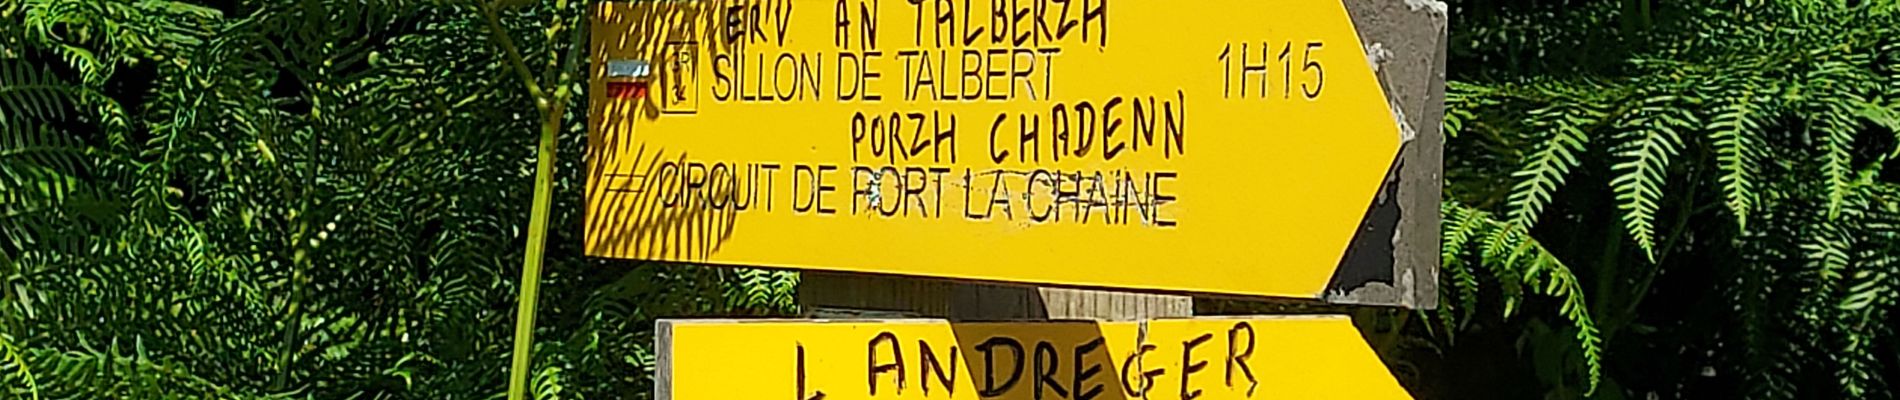 ERV AN TALBERZH
GR 34 SILLON DE TALBERT 1H15
PORZH CHADENN
CIRCUIT DE PORT LA CHAINE
LANDREGER